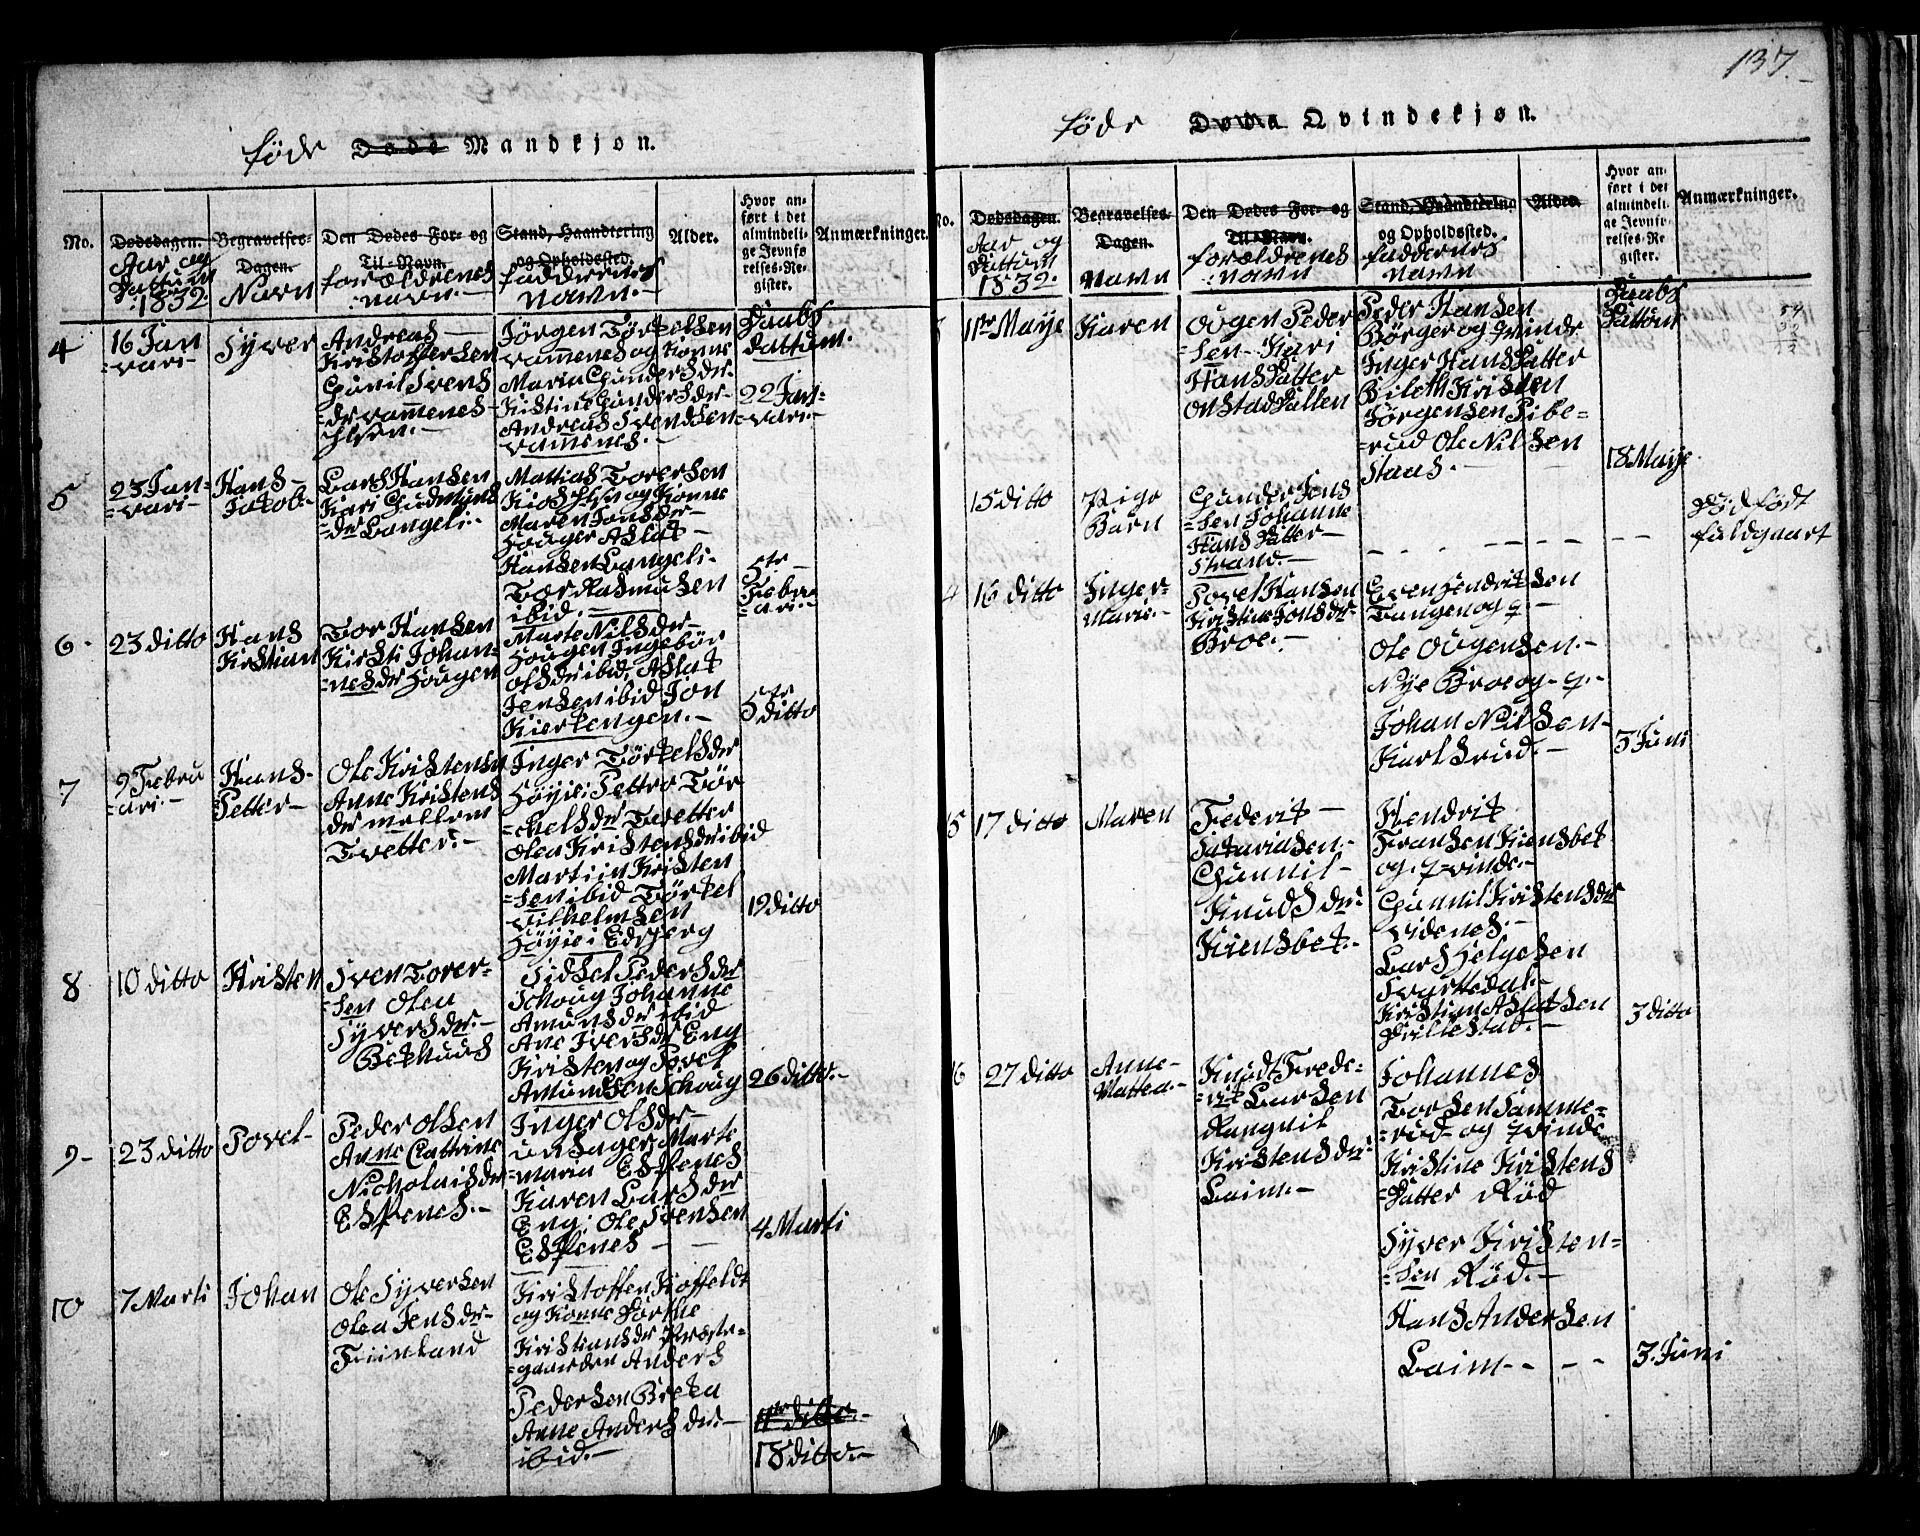 137.
føde Døde Mandkjøn.
No.
Dødsdagen.
Aar og
Dattum
1832.
Begravelses-
Dagen.
Navn
Den Dødes For- og
Til-Navn.
forældrenes
navn.-
Stand, Haandtering
og Opholdssted.
faddernes
Navn.-
Alder.
Hvor an-
ført i det
almindeli-
ge Jevnfø
relses-Re-
gister.
Anmærkninger.
4
16 Jan
=vari-
Syver
Andreas
Kristoffersen
Gunil Svens
=dr vammenes
Jørgen Tørkelsen
vammenes og Konne
Maria Gundersdr-
Kistine Gundersdr-
Andreas Svendsen
vamenes.-
Daabs
Dattum.
22 Jan=
=vari.-
5
23 Jan=
=vari-
Hans-
Jokob.-
Lars Hansen
Kari Gudmunds
=dr Langeli.-
Mattias Torersen
og Konne
Maren Jonsdr-
Houger Aslak-
Hansen Langeli.
Tor Rasmusen
ibid.
5te-
Febru
=ari.-
6-
23 ditto
Hans
Kristian
Tor Hansen
Kirsti Johan=
=nesdr Hougen
Marte Nilsdr-
Hougen Ingebör
Olsdr ibid, Aslak
Jensen ibid Jon
Kierlengen.-
5te
ditto
7
9 Febru
=ari.-
Hans-
Petter-
Ole Kristensen
Anne Kristens
dr mellem
Tvetter.-
Inger Tørkelsdr
Høyie; Pettro Tør
=kelsdr Tvetter
Olea Kristensdr ibid
Martiin Kristen
=sen ibid Törkel
vilhelmsen
Høyie i Edsberg
19 ditto
8
10 ditto
Kristen
Sven Torer=
=sen Olea
Syversdr.-
Bekhuus
Sidsel Pedersdr
Schoug Johanne
Amunsdr ibid
Ane Iversdr Eng
Kristen og Povel
Amundsen Schoug
26 ditto.-
9-
23 ditto
Povel-
Peder Olsen
Anne Cathrine
Nicholaisdr
Espenes.-
Inger Olsdr-
Marte
=maria Espenes
Karen Larsdr
Eng; Ole Svensen
Espenes
4 Marti
10
7 Marti
Johan
Ole Syversen
Olea Jensdr-
Fiinland
Kristoffer Hoffeldt
og Konne
Kristiansdr Præste=
=gaarden Anders
Pedersen Brekka
Anne Andersdr.-
ibid.-
11te ditto.-
18 ditto.-
føde Døda Qvindekjøn.
No.
Dødsdagen.
Aar og
Dattum
1832.
Begravelses-
Dagen.
Navn
Den Dødes For- og
Til-Navn.
forældrenes
navn
Stand, Haandtering
og Opholdssted.
faddernes
Navn
Alder.
Hvor an-
ført i det
almindeli-
ge Jevnfø-
relses-Re
gister.
Anmærkninger.
11te Maye
Karen
Ougen Peder
=sen Kari
Hans Datter
Onstad
Peder Hansen
Børger og Qvinde
Inger Hans Datter
Kristen
Jørgensen Pibe=
=rud Ole Nilsen
Staas.-
Daabs
Dattum
18 Maye
15 ditto
Pige
Barn
Gunder Jens
=sen Johanne
Hans Datter-
Strand.-
Død født
fuldgaart
4
16 ditto
Inger-
Marie.-
Povel Hansen
Kristine Jonsdr-
Broe.-
Even Hendriksen
Tangen og q.-
Ole Ougensen.-
Nye Broe og q.-
Johan Nilsen-
Karlsrud.-
3 Juni
5
17 ditto
Maren
Frederik-
Sakariasen.-
Gunnil-
Knudsdr.
Kiensbek.-
Hendrik
Fransen Kiensbek
og qvinde.-
Gunnil Kristensdr
videnes.-
Lars Helgesen
Svartedal.-
Kristian Aslaksen
3 ditto
6
27 ditto
Anne-
Mattea.-
Knud Frede=
=rik Larsen
Rangnil
Kristensdr:
Laim.-
Johannes
Torsen Samme=
=rud og qvinde
Kristine Kristens
=Datter Röd
Syver Kristen=
=sen Röd.-
Hans Andersen
Laim- - - -
3. Juni